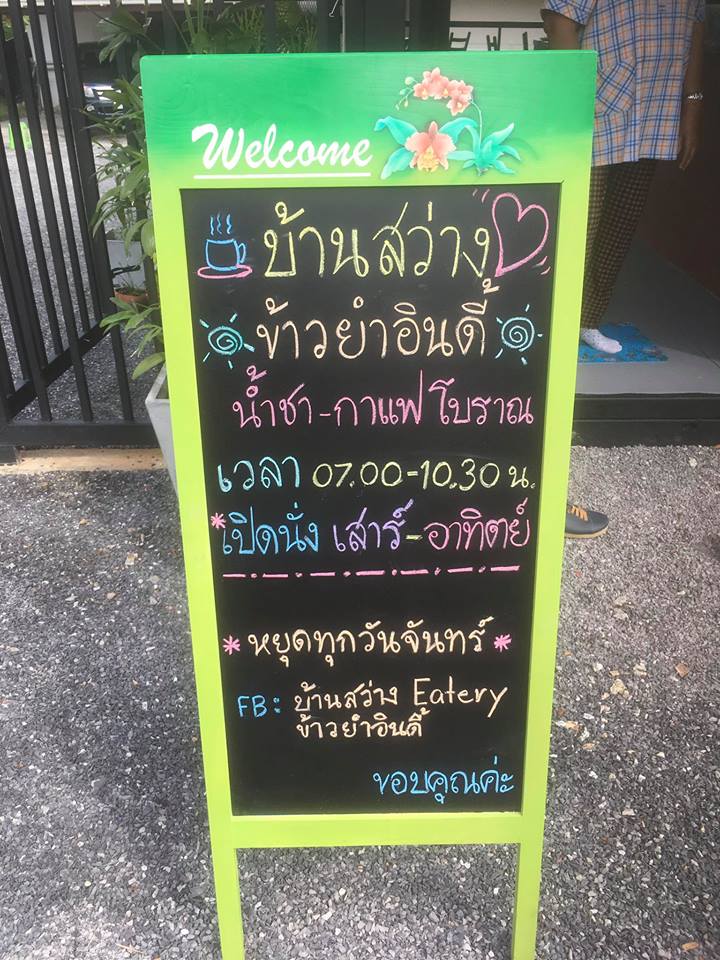 Welcome
บ้านสว่าง
ข้าวยำอินดี้
น้ำชา-กาแฟโบราณ
เวลา 07.00-10.30 น.
*เปิดนั่ง เสาร์-อาทิตย์
* หยุดทุกวันจันทร์ *
FB: บ้านสว่าง Eatery
ข้าวยำอินดี้
ขอบคุณค่ะ